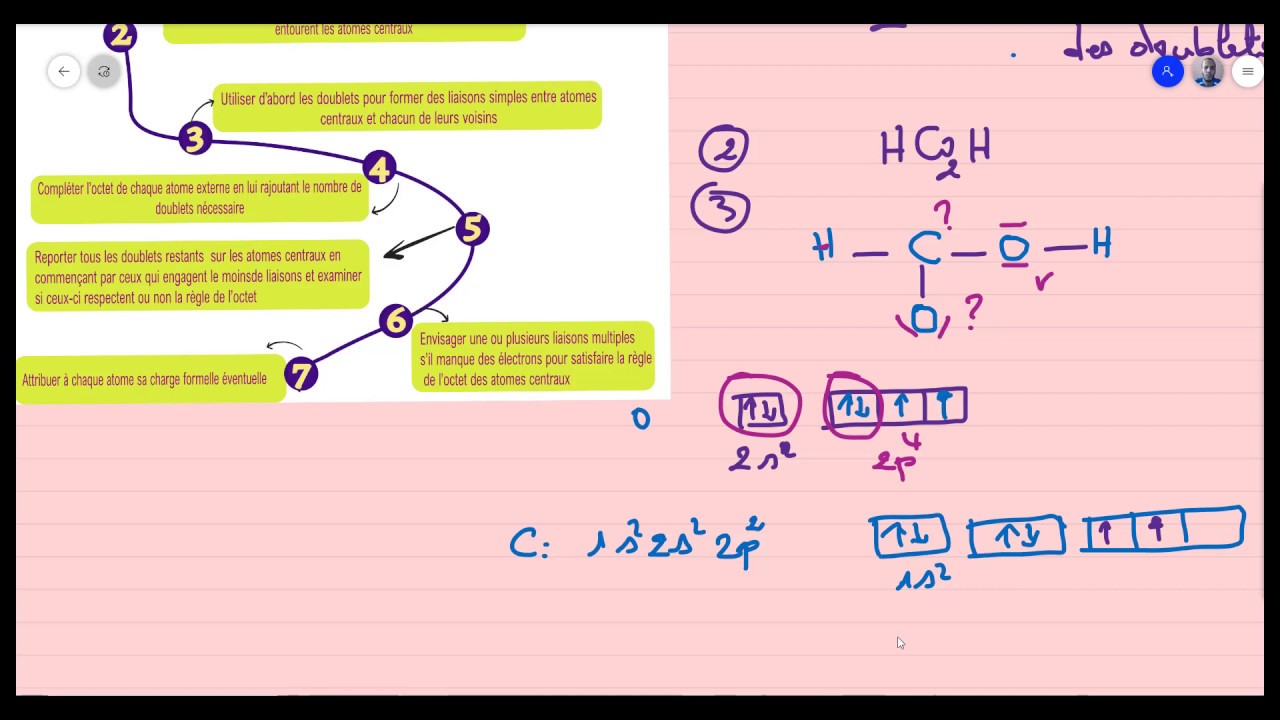 2
entourent les atomes centraux
3
Utiliser d'abord les doublets pour former des liaisons simples entre atomes
centraux et chacun de leurs voisins
4
Compléter l'octet de chaque atome externe en lui rajoutant le nombre de
doublets nécessaire
5
Reporter tous les doublets restants sur les atomes centraux en
commençant par ceux qui engagent le moinsde liaisons et examiner
si ceux-ci respectent ou non la règle de l'octet
6
Envisager une ou plusieurs liaisons multiples
s'il manque des électrons pour satisfaire la règle
de l'octet des atomes centraux
7
Attribuer à chaque atome sa charge formelle éventuelle
des doublets
2 HCO₂H
3
?
H — C — O — H
O ?
O ↑↓ ↑↓ ↑ ↑
2s² 2p⁴
C: 1s² 2s² 2p² ↑↓ ↑↓ ↑ ↑
1s²